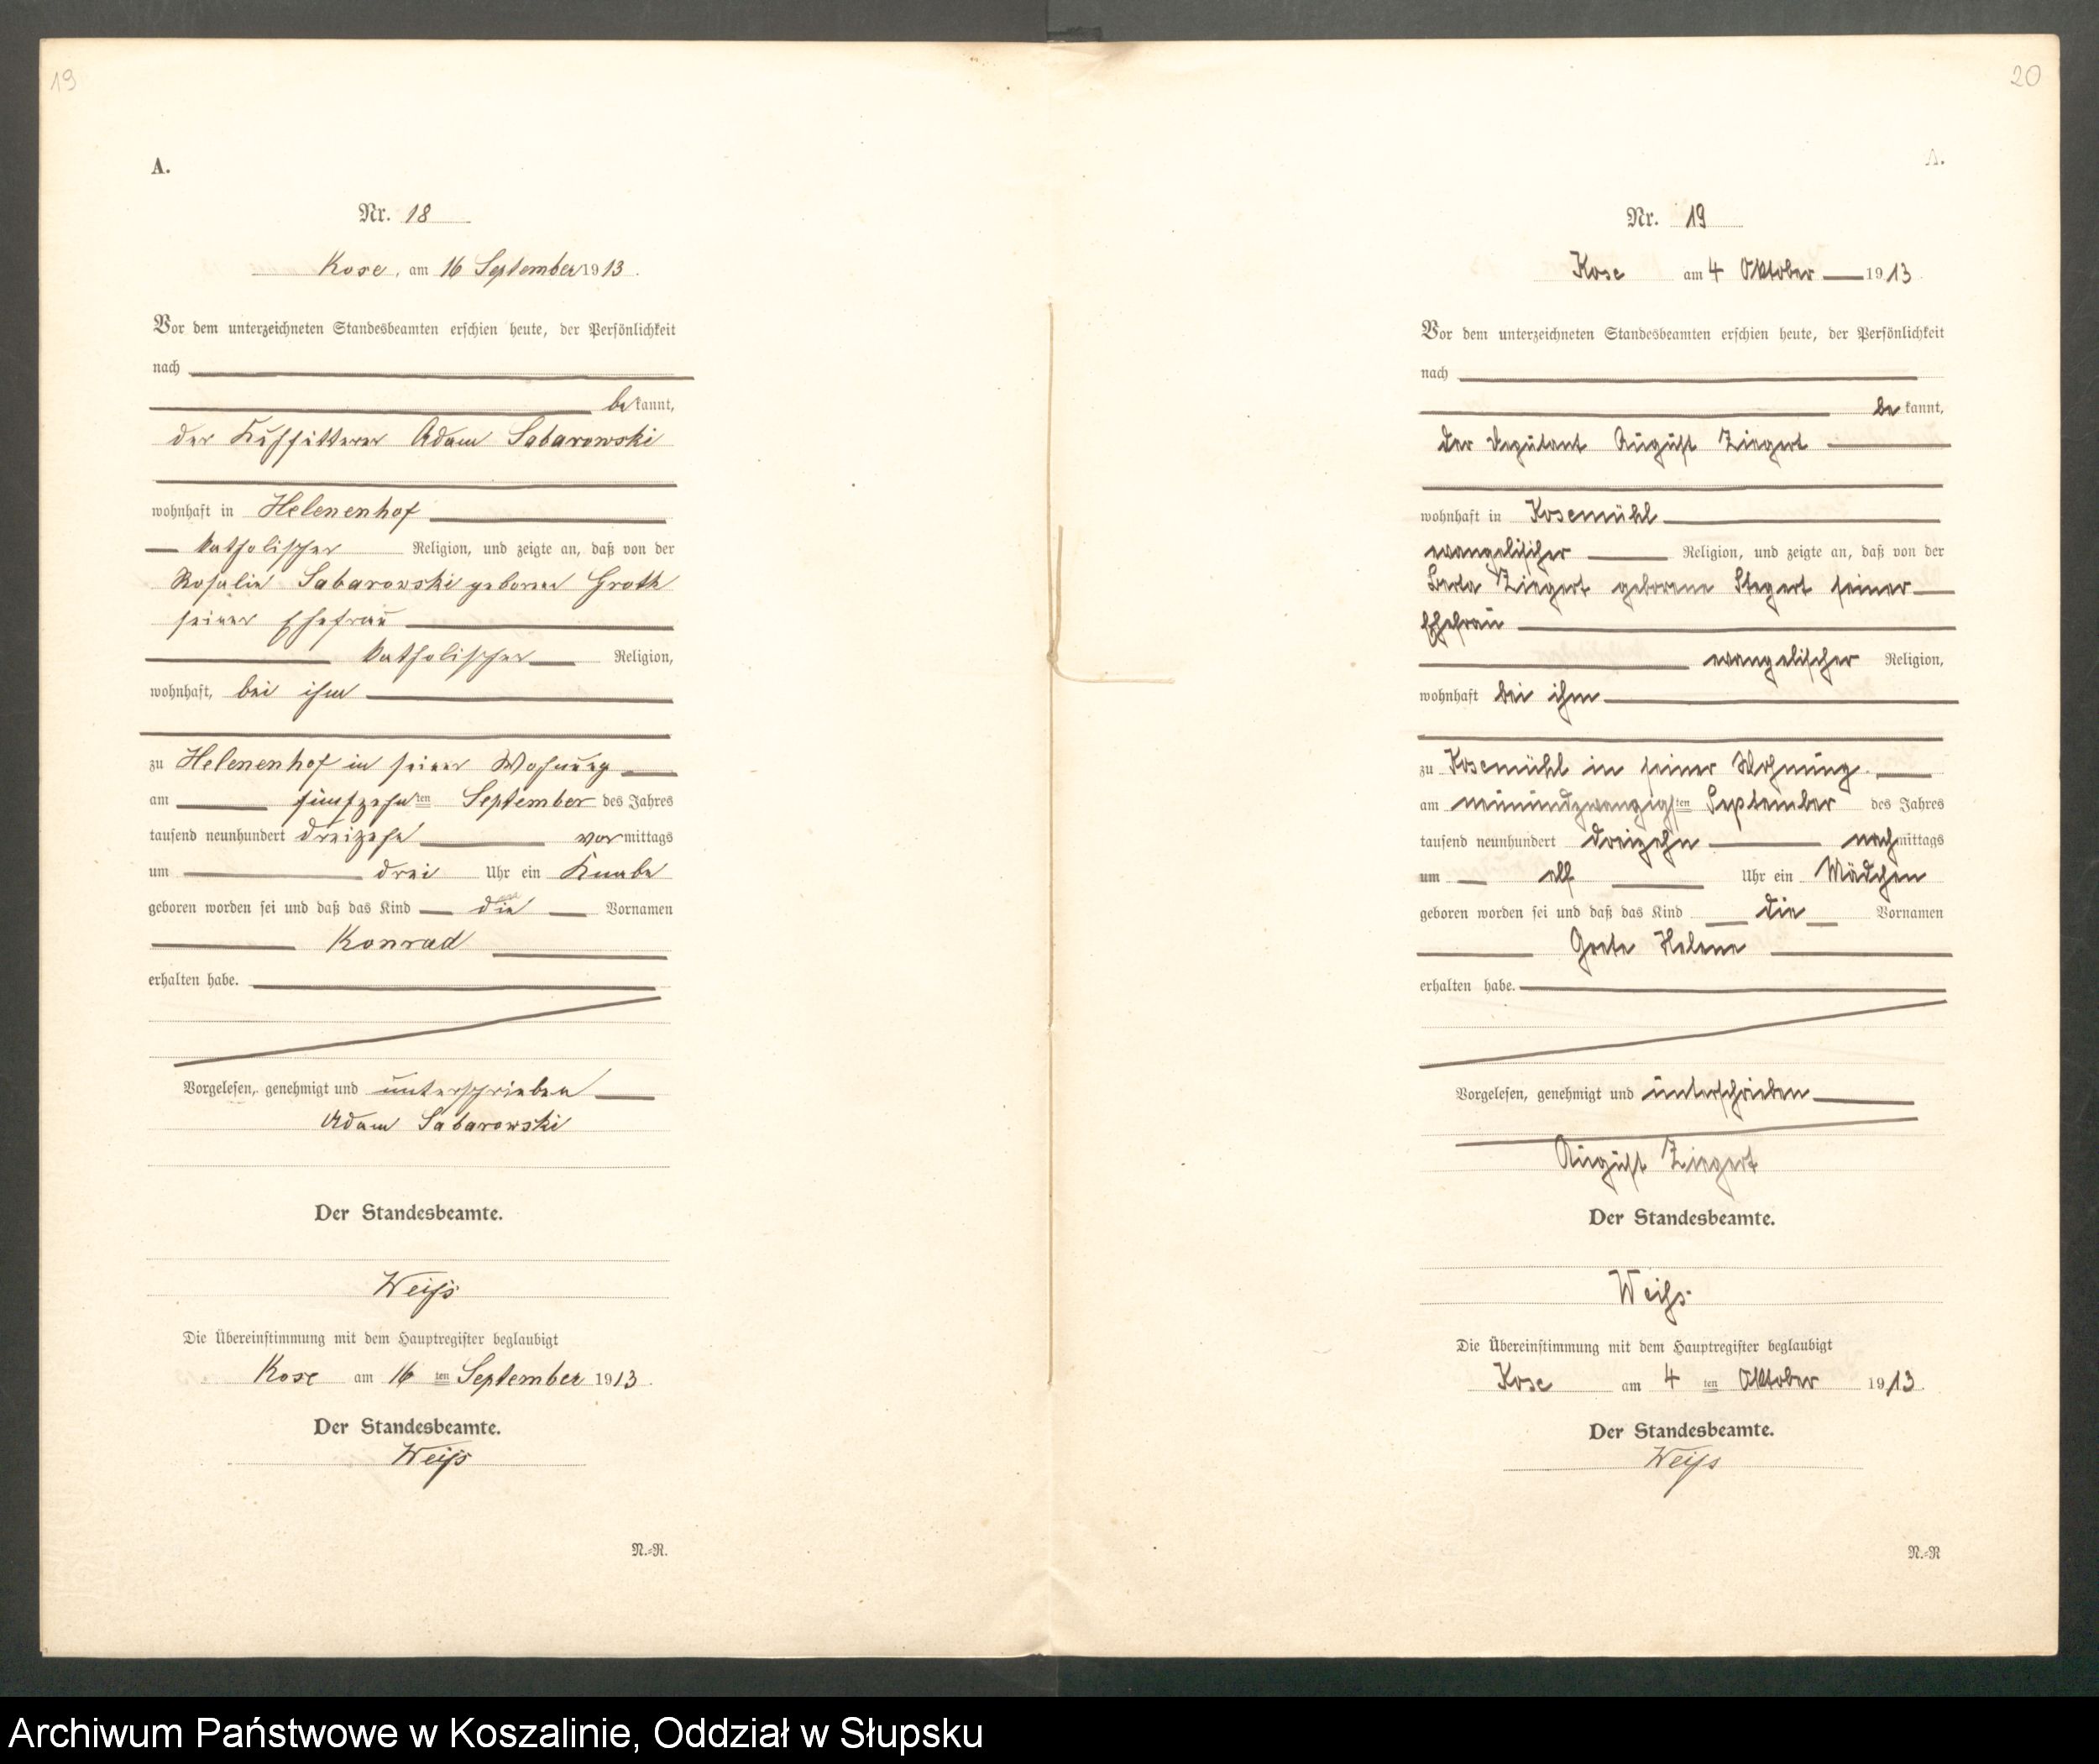 19
A.
Nr. 18
Kose, am 16 September 1913.
Vor dem unterzeichneten Standesbeamten erschien heute, der Persönlichkeit
nach
bekannt,
der Kuhfütterer Adam Sabarowski
wohnhaft in Helenenhof
katholischer Religion, und zeigte an, daß von der
Rosalie Sabarowski geborene Groth
seiner Ehefrau
katholischer Religion,
wohnhaft, bei ihm
zu Helenenhof in seiner Wohnung
am fünfzehnten September des Jahres
tausend neunhundert dreizehn vormittags
um drei Uhr ein Knabe
geboren worden sei und daß das Kind die Vornamen
Konrad
erhalten habe.
Vorgelesen, genehmigt und unterschrieben
Adam Sabarowski
Der Standesbeamte.
Weiß
Die Übereinstimmung mit dem Hauptregister beglaubigt
Kose am 16 ten September 1913.
Der Standesbeamte.
Weiß
N.=R.
20
A.
Nr. 19
Kose am 4 Oktober 1913.
Vor dem unterzeichneten Standesbeamten erschien heute, der Persönlichkeit
nach
bekannt,
der Deputant August Ziegert
wohnhaft in Kosemühl
evangelischer Religion, und zeigte an, daß von der
Berta Ziegert geborene Stegert seiner
Ehefrau
evangelischer Religion,
wohnhaft bei ihm
zu Kosemühl in seiner Wohnung.
am neunundzwanzigsten September des Jahres
tausend neunhundert dreizehn nachmittags
um elf Uhr ein Mädchen
geboren worden sei und daß das Kind die Vornamen
Grete Helene
erhalten habe.
Vorgelesen, genehmigt und unterschrieben
August Ziegert
Der Standesbeamte.
Weihs.
Die Übereinstimmung mit dem Hauptregister beglaubigt
Kose am 4 ten Oktober 1913.
Der Standesbeamte.
Weiß
N.=R
Archiwum Państwowe w Koszalinie, Oddział w Słupsku